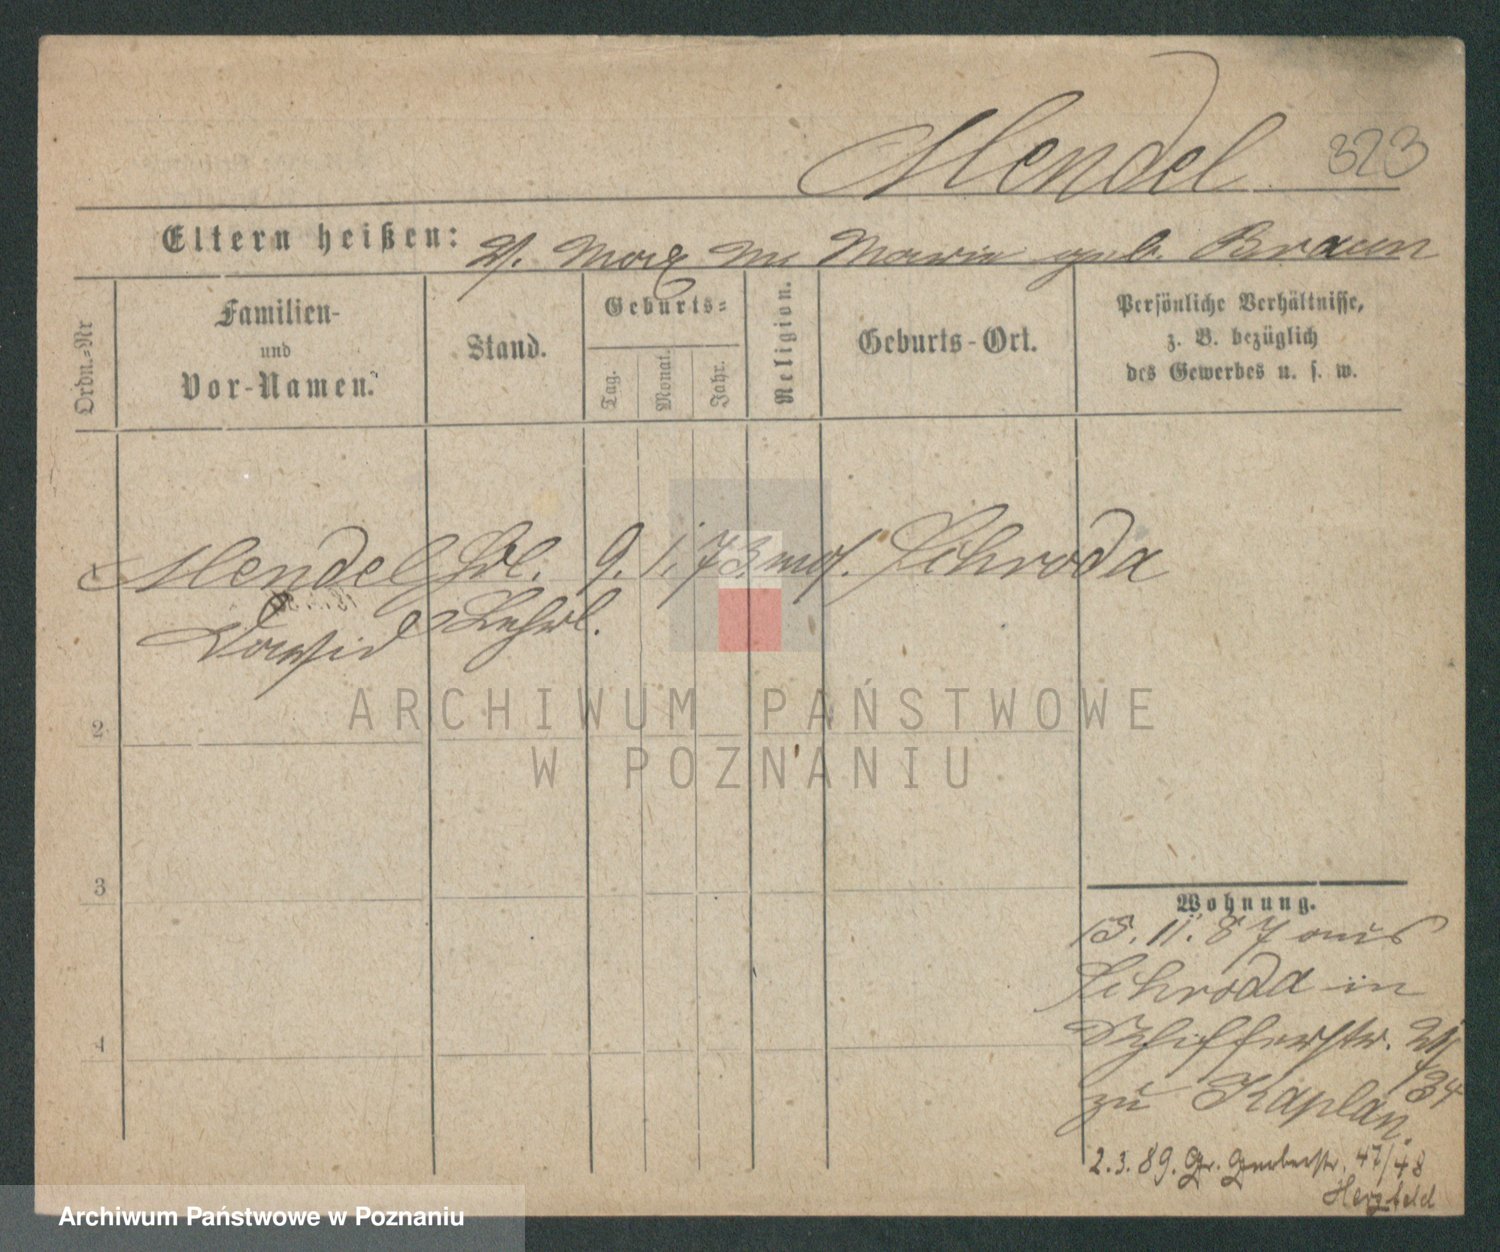 Mendel 323
Eltern heißen: V. Max Mu Marie geb. Braun
Ordn.=Nr
Familien-
und
Vor-Namen.
Stand.
Geburts=
Tag.
Monat.
Jahr.
Religion.
Geburts-Ort.
Persönliche Verhältnisse,
z. B. bezüglich
des Gewerbes u. s. w.
1 Mendel Hdl. 9. 1. 73. mos. Schroda
Dawid Lehrl.
ARCHIWUM PAŃSTWOWE
W POZNANIU
2
3
4
Wohnung.
15. 11. 87 aus
Schroda in
Schifferstr. 21/
zu Kaplan.
2. 3. 89. Gr. Gerberstr. 47/48
Herzfeld
Archiwum Państwowe w Poznaniu